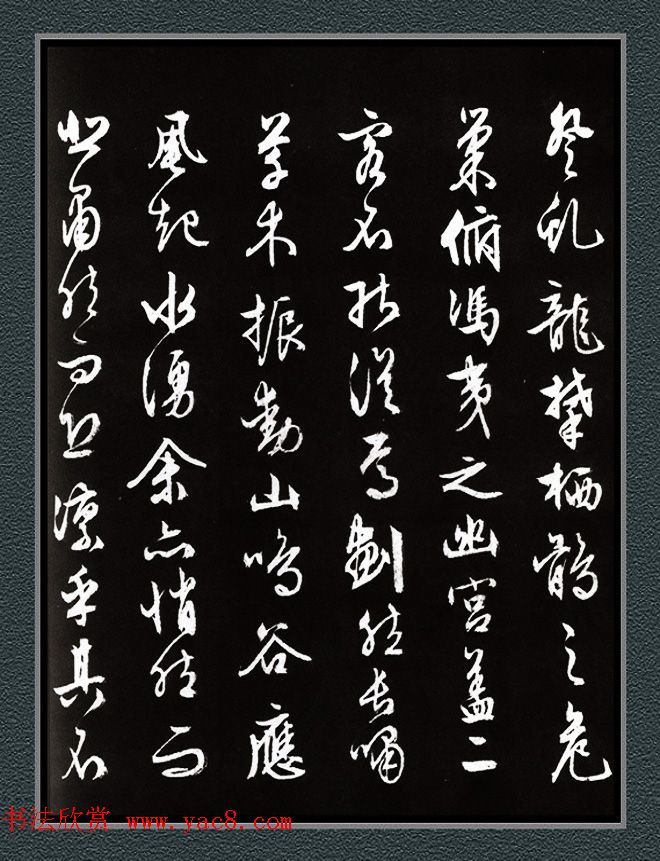 登虬龍攀栖鶻之危
巢俯馮夷之幽宮蓋二
客不能從焉劃然長嘯
草木振動山鳴谷應
風起水湧余亦悄然而
悲肅然而恐凜乎其不
书法欣赏 www.yac8.com